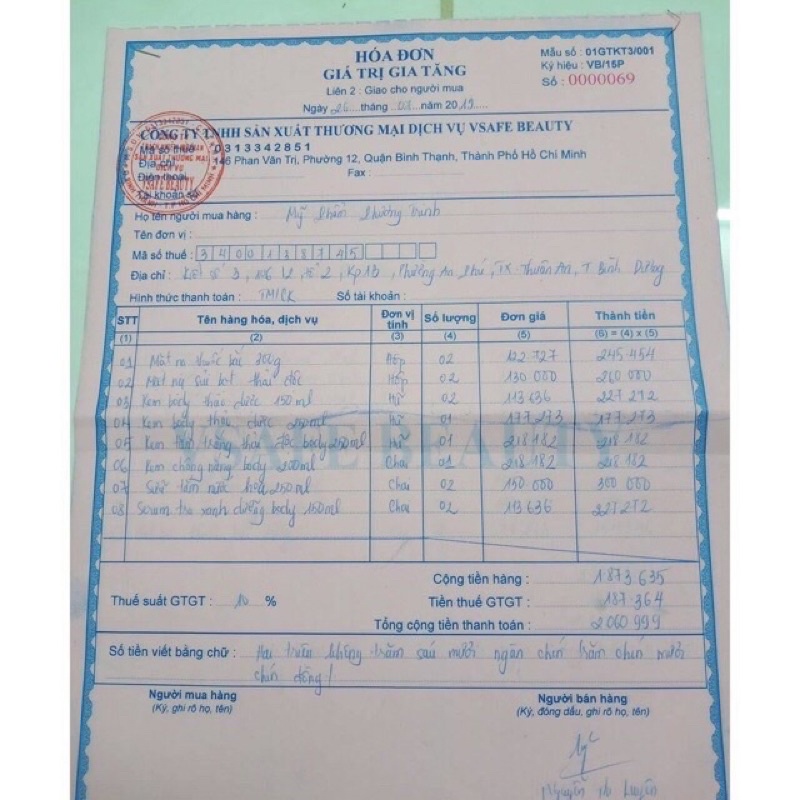 HÓA ĐƠN
GIÁ TRỊ GIA TĂNG
Liên 2 : Giao cho người mua
Ngày 26 tháng 03 năm 2019
Mẫu số : 01GTKT3/001
Ký hiệu : VB/15P
Số : 0000069
CÔNG TY TNHH SẢN XUẤT THƯƠNG MẠI DỊCH VỤ VSAFE BEAUTY
Mã số thuế 0313342851
Địa chỉ 146 Phan Văn Trị, Phường 12, Quận Bình Thạnh, Thành Phố Hồ Chí Minh
Điện thoại Fax :
Tài khoản số
SẢN XUẤT THƯƠNG MẠI
DỊCH VỤ
VSAFE BEAUTY
Họ tên người mua hàng : Mỹ Phẩm Phương Trinh
Tên đơn vị :
Mã số thuế : 3400138745
Địa chỉ : 3, tổ 2, Kp 1B, Phường An Phú, TX Thuận An, T Bình Dương
Hình thức thanh toán : TM/CK Số tài khoản :
STT Tên hàng hóa, dịch vụ Đơn vị tính Số lượng Đơn giá Thành tiền
(1) (2) (3) (4) (5) (6) = (4) x (5)
01 Mặt nạ thuốc bắc 300g Hộp 02 122 727 245 454
02 Mặt nạ sủi bọt thải độc Hộp 02 130 000 260 000
03 Kem body thảo dược 150ml Hũ 02 113 636 227 272
04 Kem body thảo dược 250ml Hũ 01 177 273 177 273
05 Kem trắng thải độc body 250ml Hũ 01 218 182 218 182
06 Kem chống nắng body 200ml Chai 01 218 182 218 182
07 Sữa tắm nước hoa 250ml Chai 02 150 000 300 000
08 Serum tra xanh dưỡng body 150ml Chai 02 113 636 227 272
VSAFE BEAUTY
Cộng tiền hàng : 1 873 635
Thuế suất GTGT : 10 % Tiền thuế GTGT : 187 364
Tổng cộng tiền thanh toán : 2 060 999
Số tiền viết bằng chữ : Hai triệu không trăm sáu mươi ngàn chín trăm chín mươi
chín đồng /
Người mua hàng
(Ký, ghi rõ họ, tên)
Người bán hàng
(Ký, đóng dấu, ghi rõ họ, tên)
Nguyễn